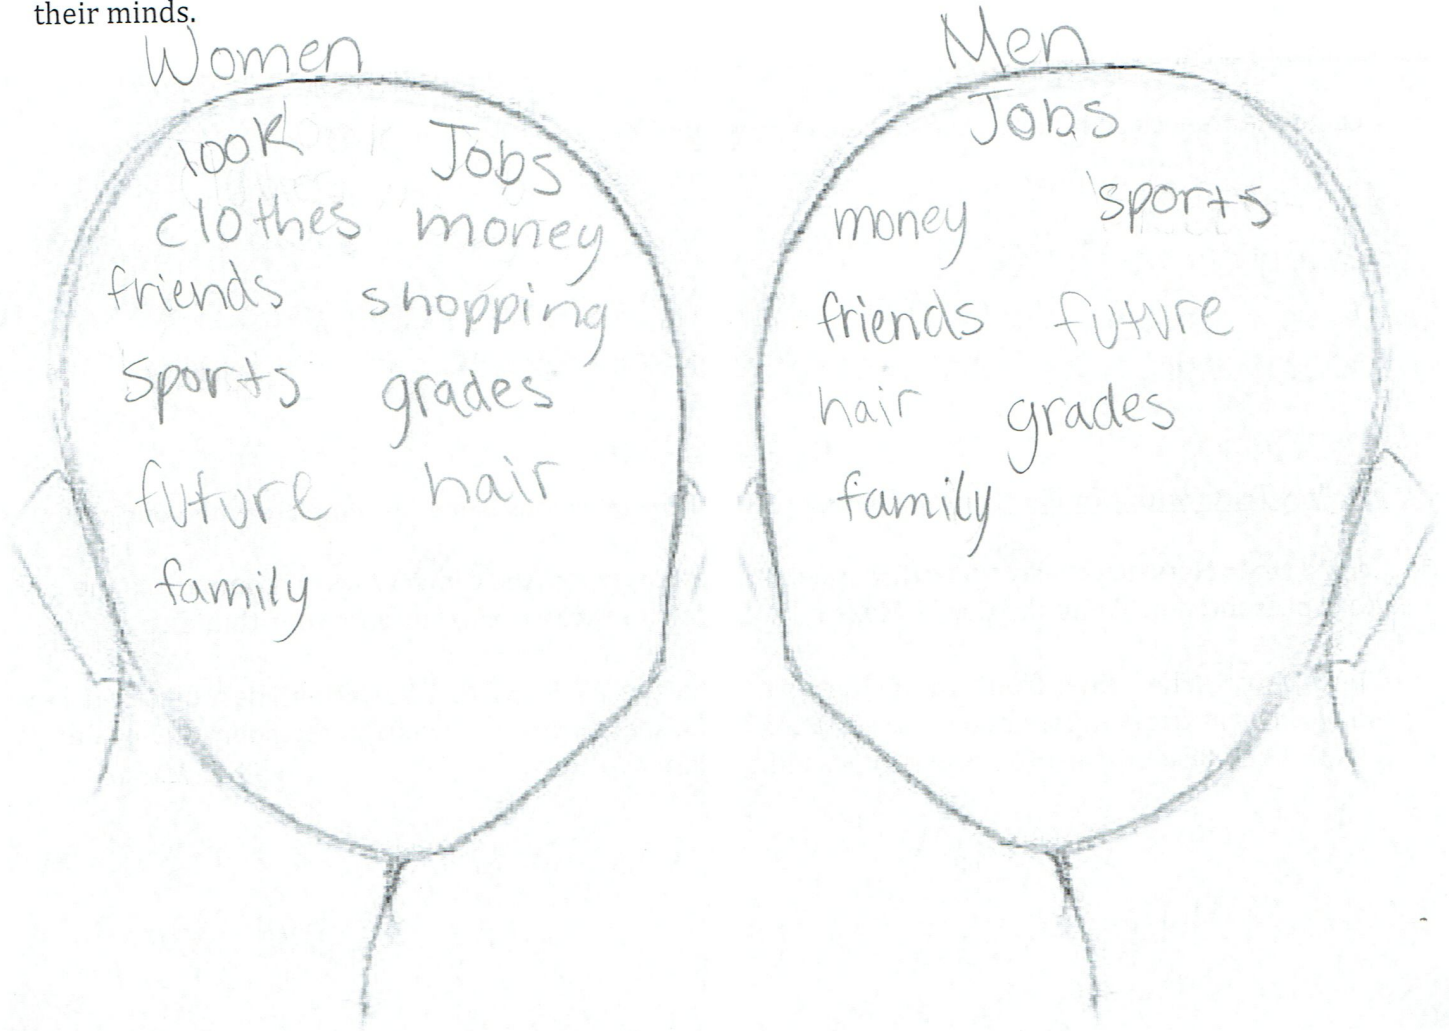 their minds.
Women
look Jobs
clothes money
friends shopping
sports grades
future hair
family
Men
Jobs
money sports
friends future
hair grades
family